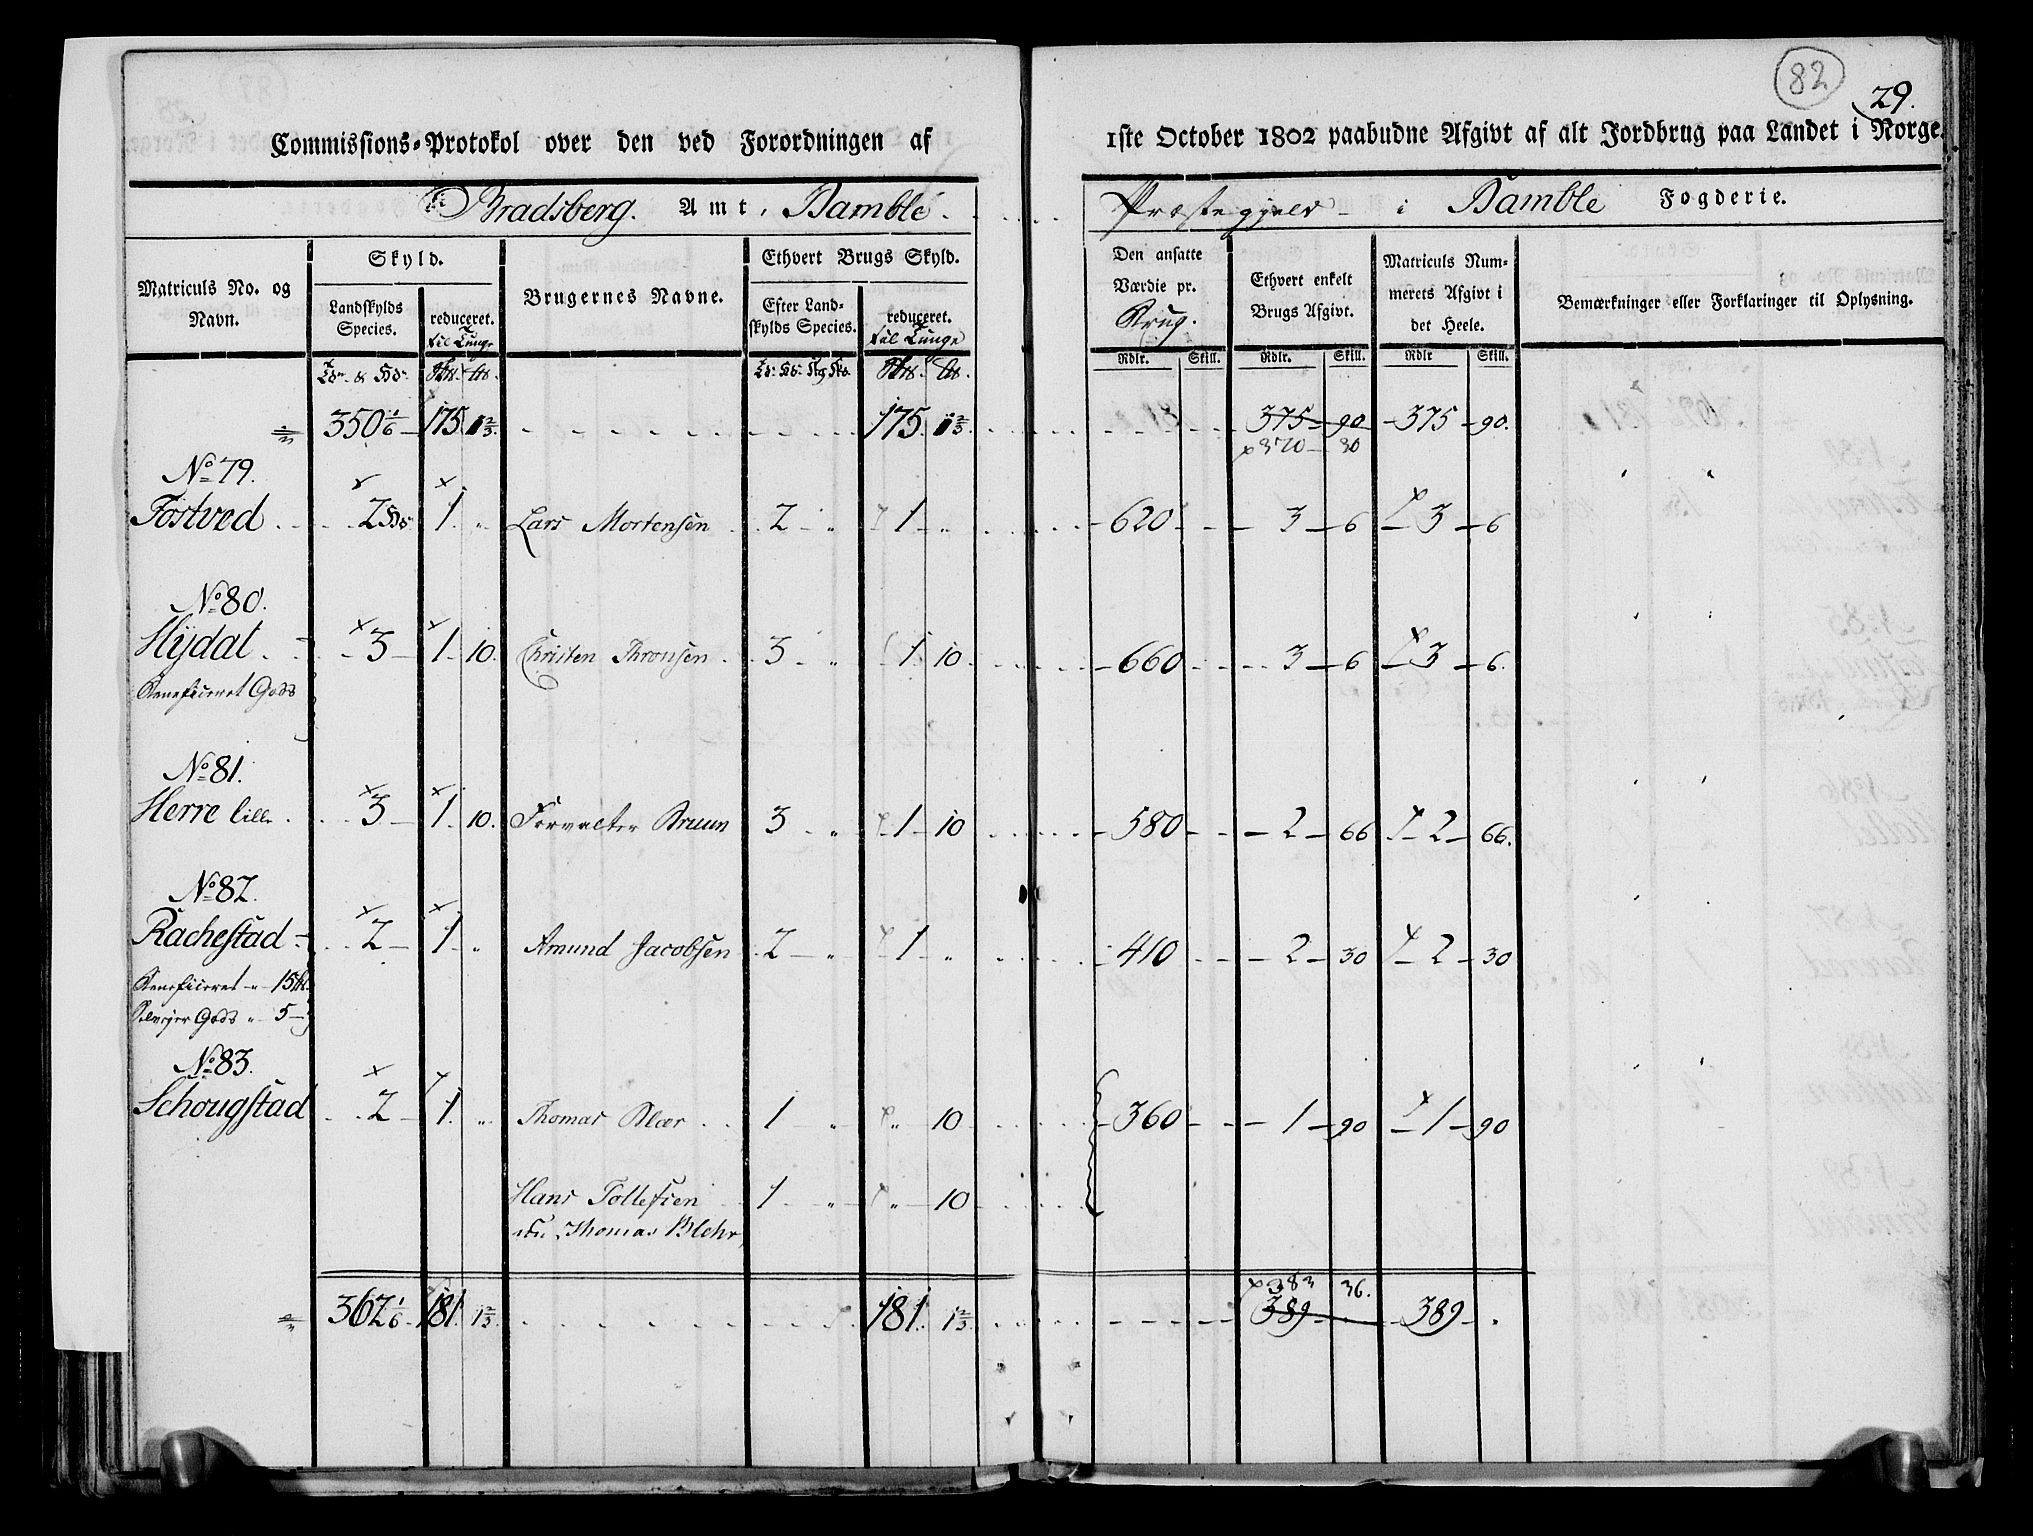 82
29.
Commissions-Protokol over den ved Forordningen af 1ste October 1802 paabudne Afgivt af alt Jordbrug paa Landet i Norge.
i Bradsberg. Amt, Bamble Præstegjeld i Bamble Fogderie.
Matriculs No. og Navn.
Skyld.
Landskylds Species.
reduceret. til Tunge
Brugernes Navne.
Ethvert Brugs Skyld.
Efter Landskylds Species.
reduceret. til Tunge
Den ansatte Værdie pr. Brug.
Ethvert enkelt Brugs Afgivt.
Matriculs Nummerets Afgivt i det Heele.
Bemærkninger eller Forklaringer til Oplysning.
Rdlr. Skill. Rdlr. Skill. Rdlr Skill.
350 1/6 175 1 2/3 175. 1 2/3 375 90 375 90.
x 370 30
No 79.
Tostved 2 1 " Lars Mortensen 2 " 1 " 620 3 6 3 6
No 80.
Hydal 3 1 10. Christen Thronsen 3 " 1 10 660 3 6 3 6.
Beneficeret Gods
No 81.
Herre lille 3 1 10. Forvalter Bruun 3 " 1 10 580 2 66 2 66.
No 82.
Rachestad 2 1 " Amund Jacobsen 2 " 1 " 410 2 30 2 30
Beneficeret " 15
Selvejer Gods " 5
No 83.
Schougstad 2 1. " Thomas Blær 1 " " 10 360 1 90 1 90
Hans Tollefsen 1 " " 10
nu Thomas Blehr
x 383 36.
362 1/6 181. 1 2/3 181. 1 2/3 389 389